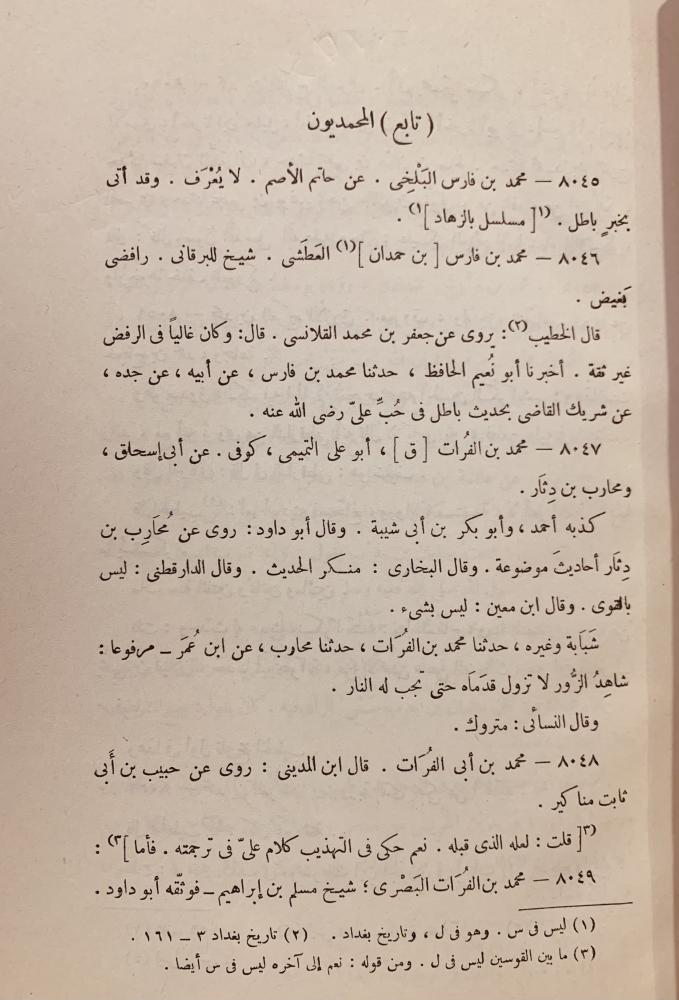 ( تابع ) المحمديون
٨٠٤٥ — محمد بن فارس البَلْخِى . عن حاتم الأصم . لا يُعْرَف . وقد أتى
بخبرٍ باطل . (١[ مسلسل بالزهاد ]١) .
٨٠٤٦ — محمد بن فارس [ بن حمدان ](١) العَطَشى . شيخ للبرقانى . رافضى
بَغيض .
قال الخطيب(٢): يروى عن جعفر بن محمد القلانسى . قال: وكان غالياً فى الرفض
غير ثقة . أخبرنا أبو نُعيم الحافظ ، حدثنا محمد بن فارس ، عن أبيه ، عن جده ،
عن شريك القاضى بحديث باطل فى حُبِّ علىّ رضى الله عنه .
٨٠٤٧ — محمد بن الفُرات [ ق ] ، أبو على التميمى ، كوفى . عن أبى إسحاق ،
ومحارب بن دِثَار .
كذبه أحمد ، وأبو بكر بن أبى شيبة . وقال أبو داود : روى عن مُحَارِب بن
دِثَار أحاديثَ موضوعة . وقال البخارى : منكر الحديث . وقال الدارقطنى : ليس
بالقوى . وقال ابن معين : ليس بشىء .
شَبَابة وغيره ، حدثنا محمد بن الفُرَات ، حدثنا محارب ، عن ابن عُمَر — مرفوعا :
شاهِدُ الزُّور لا تزول قدَمَاه حتى تجب له النار .
وقال النسائى : متروك .
٨٠٤٨ — محمد بن أبى الفُرَات . قال ابن المدينى : روى عن حبيب بن أَبى
ثابت مناكير .
(٣[ قلت : لعله الذى قبله . نعم حكى فى التهذيب كلام علىّ فى ترجمته . فأما ]٣) :
٨٠٤٩ — محمد بن الفُرَات البَصْرى ؛ شيخ مسلم بن إبراهيم — فوثقه أبو داود .
(١) ليس فى س . وهو فى ل ، وتاريخ بغداد . (٢) تاريخ بغداد ٣ — ١٦١ .
(٣) ما بين القوسين ليس فى ل . ومن قوله : نعم إلى آخره ليس فى س أيضا .